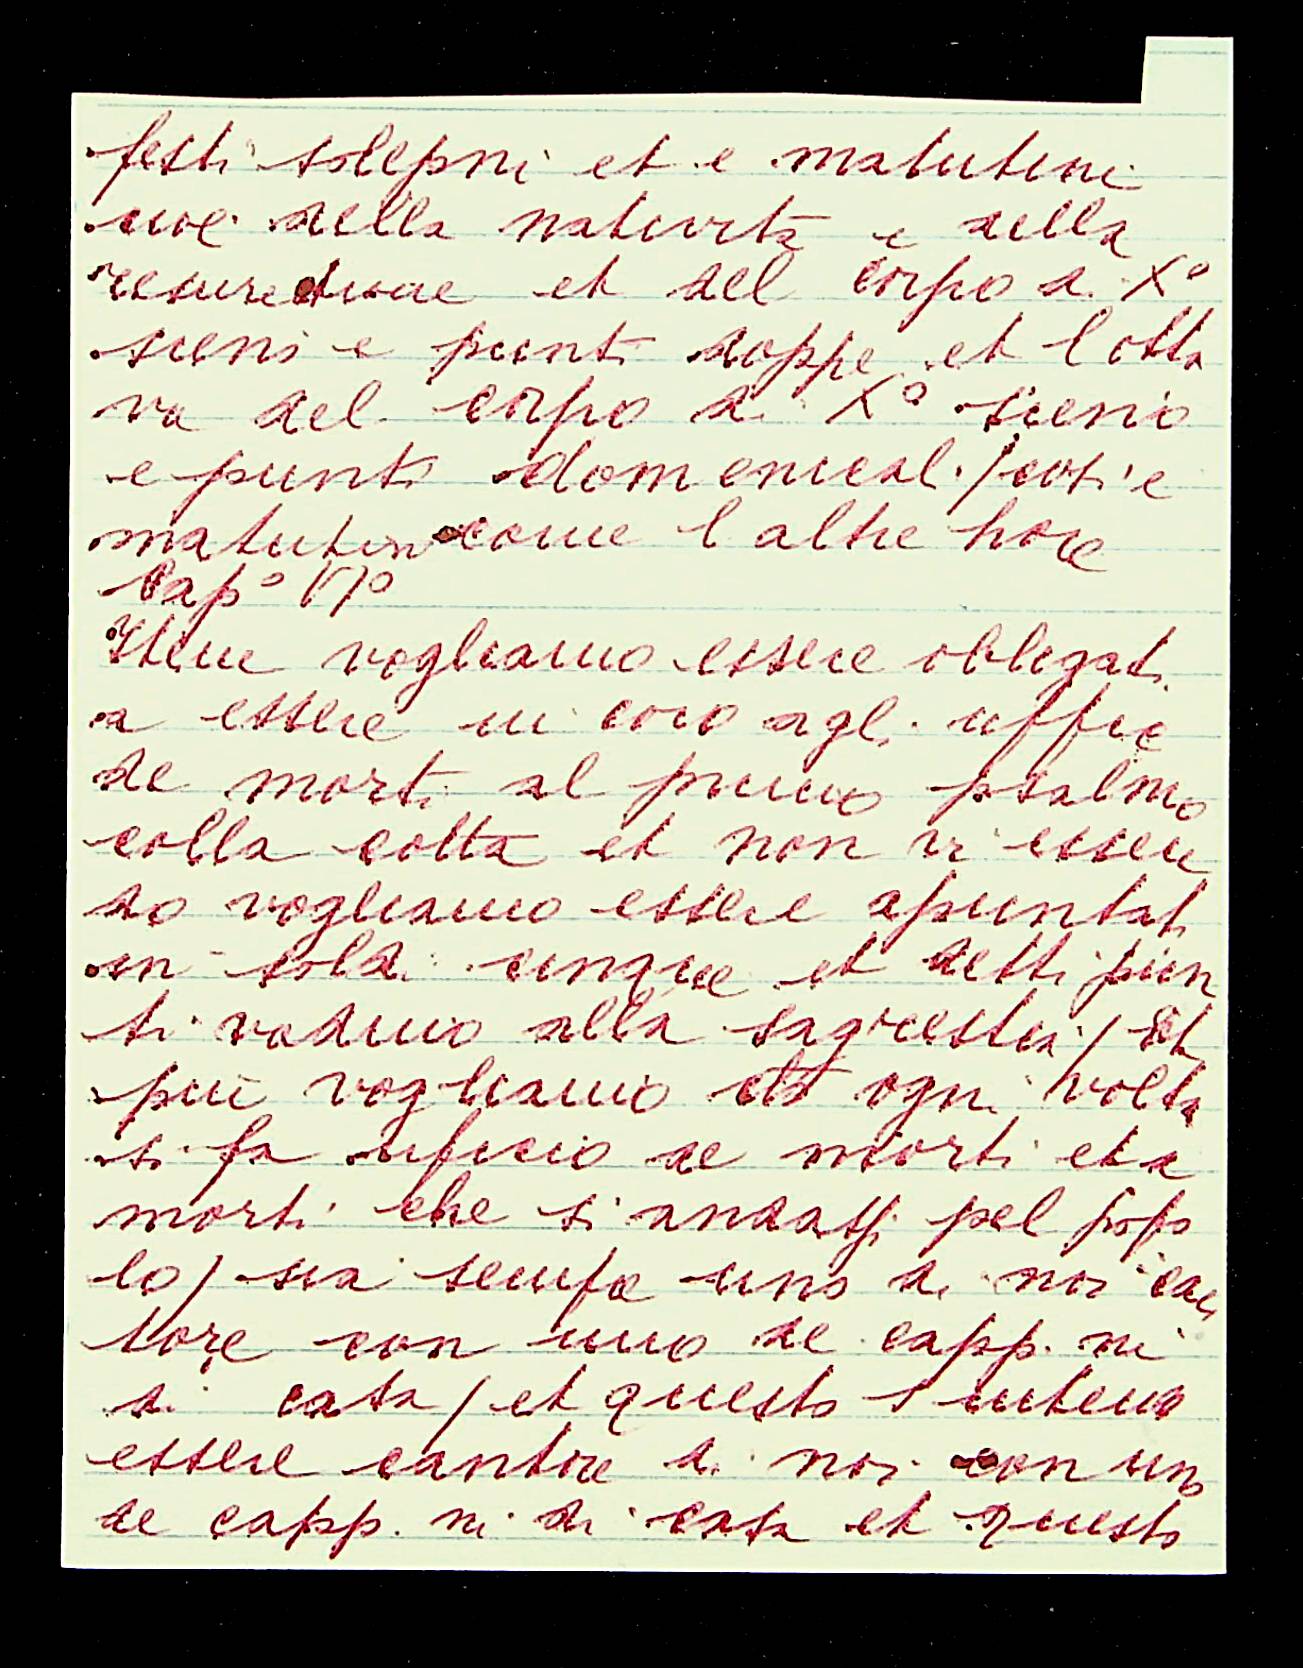 festi solepni et e matutini
cioe della natività e della
resuretione et del corpo di Xº
sieno e punti doppi et l otta
va del corpo di Xº sieno
e punti domenicali / cosi e
matutin come l altre hore
Capº VIº
Item vogliamo essere obligati
a essere in coro agli uffici
de morti al primo psalmo
colla cotta et non vi essen
do vogliamo essere apuntati
in soldi cinque et detti pun
ti vadino alla sagrestia / Et
più vogliamo ogni volta
si fa uficio de morti et a
morti che si andassi pel popo
lo / sia sempre uno di noi can
tore con uno de capp. ni
di casa / et questo s intend
essere cantore di noi con uno
de capp. ni di casa et questo